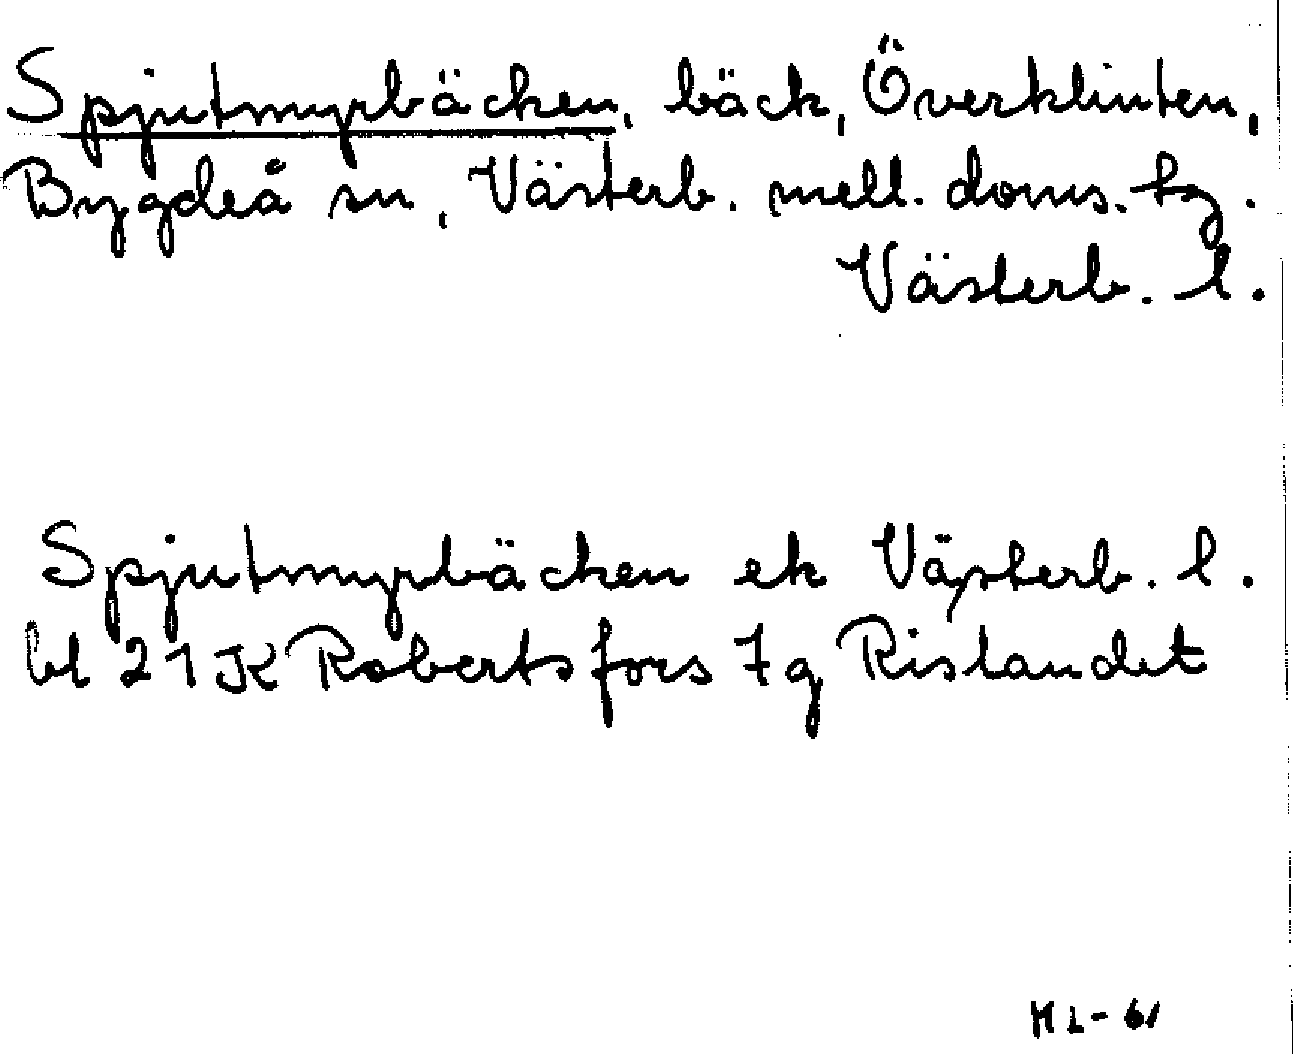 Spjutmyrbäcken, bäck, Överklinten,
Bygdeå sn, Västerb. mell. doms. tg.
Västerb. l.
Spjutmyrbäcken ek Västerb. l.
bl 21K Robertsfors 7g Rislandet
ML-61